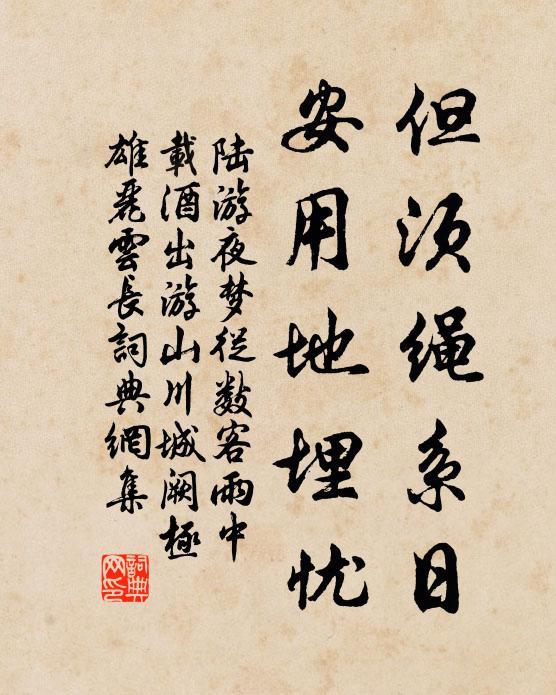 但须绳系日
安用地埋忧
陆游夜梦从数客雨中
載酒出游山川城阙極
雄丽雲长詞典網集
詞典网印